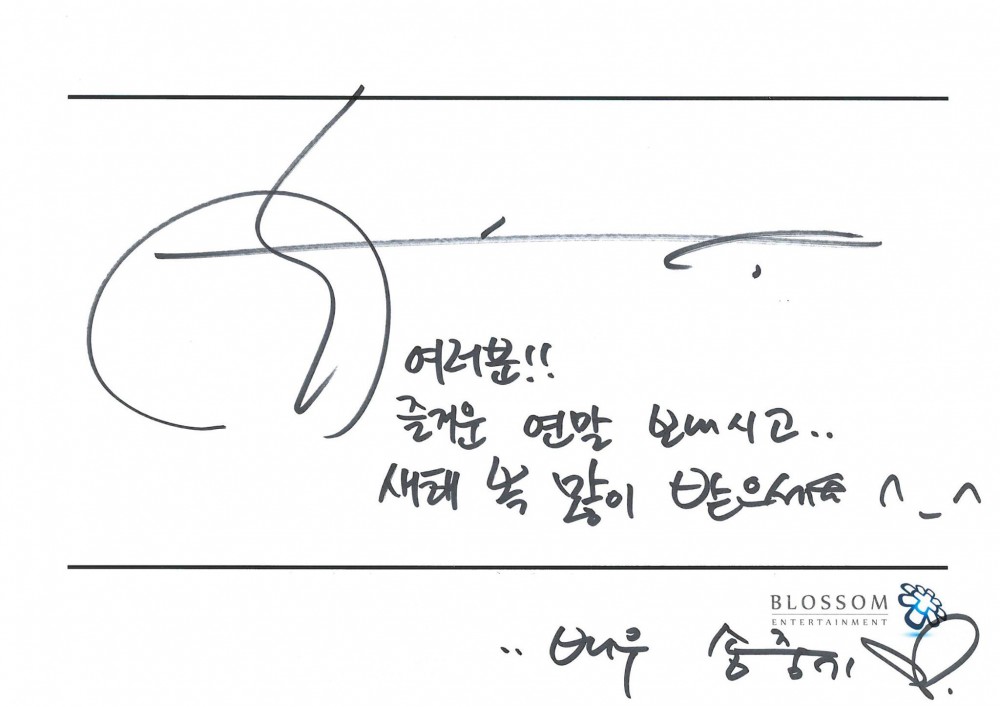 여러분!!
즐거운 연말 보내시고..
새해 복 많이 받으세요 ^_^
BLOSSOM
ENTERTAINMENT
.. 배우 송중기